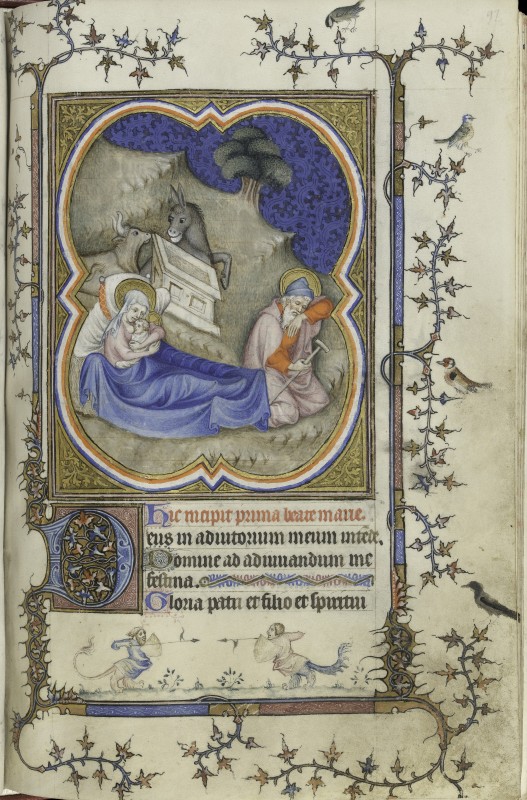 Hic incipit prima beate marie.
Deus in adiutorium meum intēde.
Domine ad adiuuandum me
festina.
Gloria patri et filio et spiritui